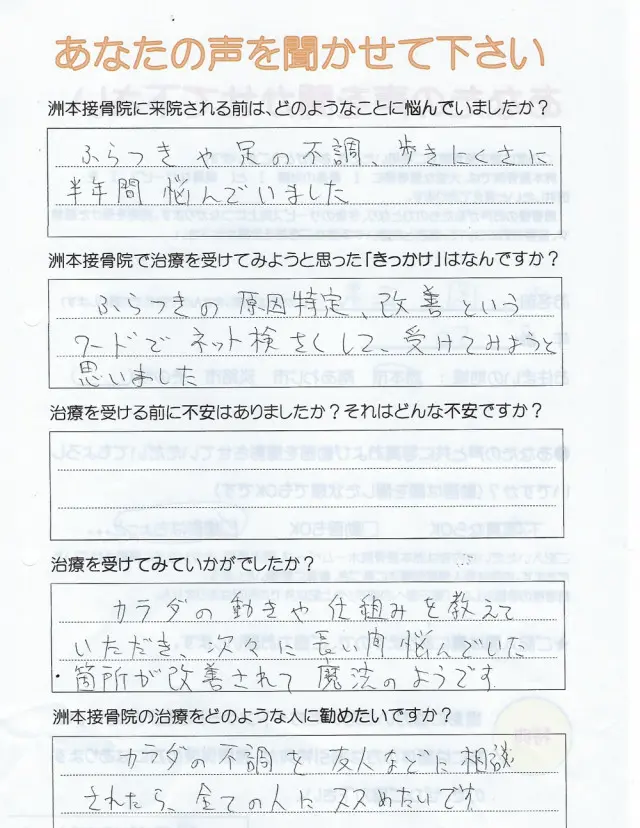 あなたの声を聞かせて下さい
洲本接骨院に来院される前は、どのようなことに悩んでいましたか？
ふらつきや足の不調、歩きにくさに
半年間悩んでいました
洲本接骨院で治療を受けてみようと思った「きっかけ」はなんですか？
ふらつきの原因特定、改善という
ワードでネット検さくして、受けてみようと
思いました
治療を受ける前に不安はありましたか？それはどんな不安ですか？
治療を受けてみていかがでしたか？
カラダの動きや仕組みを教えて
いただき、次々に長い間悩んでいた
・箇所が改善されて魔法のようです
洲本接骨院の治療をどのような人に勧めたいですか？
カラダの不調を友人などに相談
されたら、全ての人にススめたいです